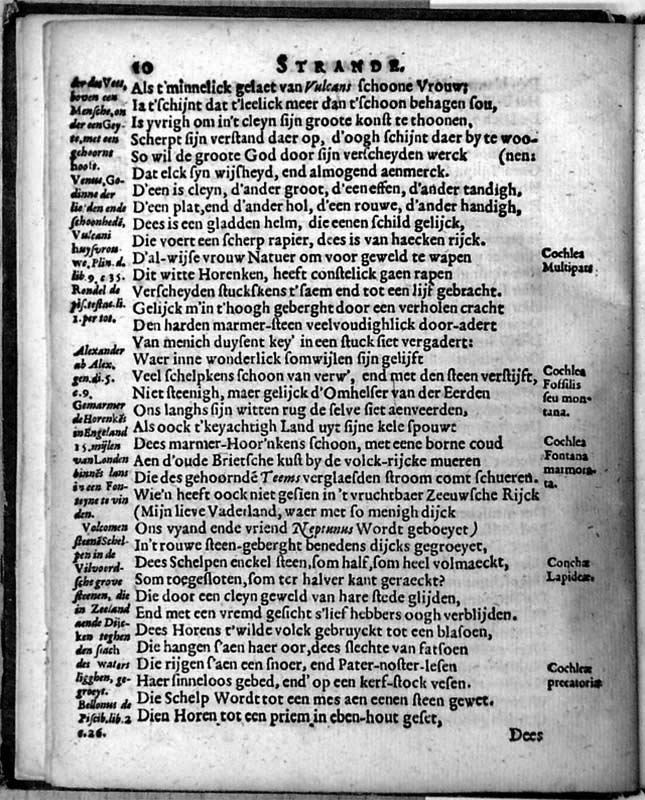 10 STRANDE.
Als t'minnelick gelaet van Vulcans schoone Vrouw:
Ia t'schijnt dat t'leelick meer dan t'schoon behagen sou,
Is yvrigh om in't cleyn sijn groote konst te thoonen,
Scherpt sijn verstand daer op, d'oogh schijnt daer by te woo-
So wil de groote God door sijn verscheyden werck (nen:
Dat elck syn wijsheyd, end almogend aenmerck.
D'een is cleyn, d'ander groot, d'een effen, d'ander tandigh,
D'een plat, end d'ander hol, d'een rouwe, d'ander handigh,
Dees is een gladden helm, die eenen schild gelijck,
Die voert een scherp rapier, dees is van haecken rijck.
D'al-wijse vrouw Natuer om voor geweld te wapen
Dit witte Horenken, heeft constelick gaen rapen
Verscheyden stuckskens t'saem end tot een lijf gebracht.
Gelijck m'in t'hoogh geberght door een verholen cracht
Den harden marmer-steen veelvoudighlick door-adert
Van menich duysent key' in een stuck siet vergadert:
Waer inne wonderlick somwijlen sijn gelijft
Veel schelpkens schoon van verw', end met den steen verstijft,
Niet steenigh, maer gelijck d'Omhelser van der Eerden
Ons langhs sijn witten rug de selve siet aenveerden,
Als oock t'keyachtigh Land uyt sijne kele spouwt
Dees marmer-Hoor'nkens schoon, met eene borne coud
Aen d'oude Brietsche kust by de volck-rijcke mueren
Die des gehoorndẽ Teems verglaesden stroom comt schueren.
Wie'n heeft oock niet gesien in 't vruchtbaer Zeeuwsche Rijck
(Mijn lieve Vaderland, waer met so menigh dijck
Ons vyand ende vriend Neptunus Wordt geboeyet)
In't rouwe steen-geberght benedens dijcks gegroeyet,
Dees Schelpen enckel steen, som half, som heel volmaeckt,
Som toegesloten, som ter halver kant geraeckt?
Die door een cleyn geweld van hare stede glijden,
End met een vremd gesicht s'lief hebbers oogh verblijden.
Dees Horens t'wilde volck gebruyckt tot een blasoen,
Die hangen s'aen haer oor, dees slechte van fatsoen
Die rijgen s'aen een snoer, end Pater-noster-lesen
Haer sinneloos gebed, end' op een kerf-stock vesen.
Die Schelp Wordt tot een mes aen eenen steen gewet.
Dien Horen tot een priem in eben-hout geset,
Dees
boven een
Mensche, en
der een Gey-
te, met een
gehoornt
hooft.
Venus, Go-
dinne der
liefden ende
schoonhedẽ,
Vulcani
huysvrou-
we. Plin. d.
lib. 9. c 35.
Rondel de
pis. testac. li.
1. per tot.
Alexander
ab Alex.
gen. di. 5.
c. 9.
Gemarmer
de Horenkẽs
in Engeland
15. mijlen
van Londen
binnẽs lans
in een Fon-
teyne te vin
den.
Volcomen
steenẽ Schel-
pen in de
Vilvoord-
sche grove
steenen, die
in Zeeland
aende Dijc-
ken teghen
den slach
des waters
ligghen, ge-
groeyt.
Bellonus de
Piscib. lib. 2
c. 26.
Cochlea
Multipars.
Cochlea
Fossilis
seu mon-
tana.
Cochlea
Fontana
marmora-
ta.
Conchæ
Lapideæ.
Cochleæ
precatoriæ